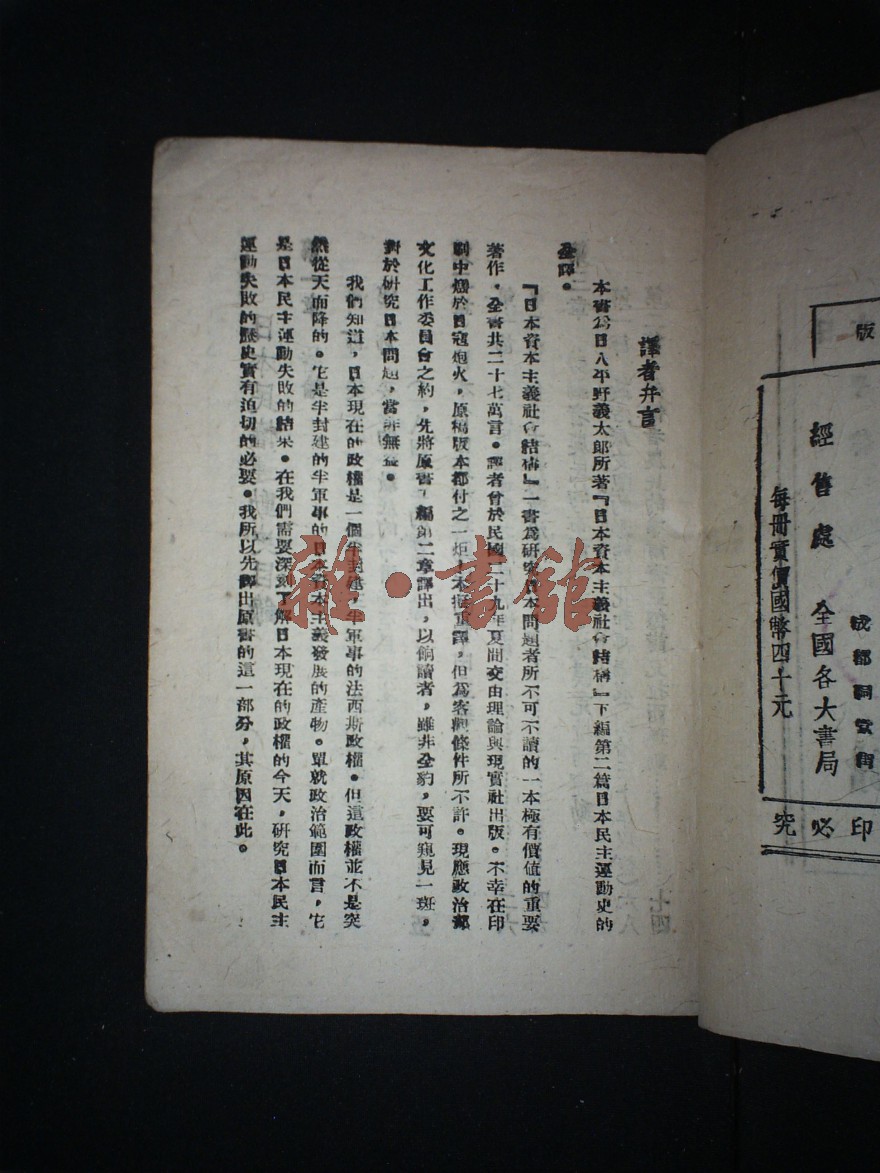 版
印必究
成都祠堂街
經售處 全國各大書局
每冊實價國幣四十元
譯者弁言
本書爲日人平野義太郎所著『日本資本主義社會結構』下編第二篇日本民主運動史的
全譯。
『日本資本主義社會結構』一書爲研究日本問題者所不可不讀的一本極有價值的重要
著作，全書共二十七萬言。譯者曾於民國二十九年夏間交由理論與現實社出版。不幸在印
刷中燬於日寇炮火，原稿版本都付之一炬。本擬重譯，但爲客觀條件所不許。現應政治部
文化工作委員會之約，先將原書下編第二章譯出，以餉讀者，雖非全豹，要可窺見一斑，
對於研究日本問題，當非無益。
我們知道，日本現在的政權是一個半封建，半軍事的法西斯政權。但這政權並不是突
然從天而降的。它是半封建的半軍事的日本資本主義發展的產物。單就政治範圍而言，它
是日本民主運動失敗的結果。在我們需要深刻了解日本現在的政權的今天，研究日本民主
運動失敗的歷史實有迫切的必要。我所以先譯出原書的這一部分，其原因在此。
雜·書館